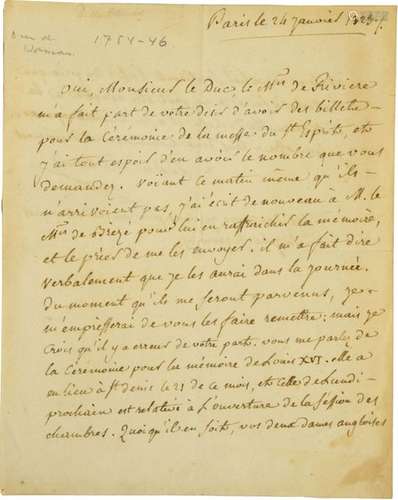 Paris le 24 janvier
1754-46
Oui, Monsieur le Duc, le Mis de Riviere
m'a fait part de votre desir d'avoir des billets
pour la Cérémonie de la messe du St Esprit, et
j'ai tout espoir d'en avoir le nombre que vous
demandez. Voïant ce matin même qu'ils
n'arrivoient pas, j'ai écrit de nouveau à M. le
Mis de Brezé pour lui en raffraichir la mémoire,
et le prier de me les envoyer. il m'a fait dire
verbalement que je les aurai dans la journée.
du moment qu'ils me seront parvenus, je
m'empresserai de vous les faire remettre; mais je
crois qu'il y a erreur de votre part. vous me parlez de
la Cérémonie pour la mémoire de Louis XVI. elle a
eu lieu à St denis le 21 de ce mois, et celle de Lundi
prochain est relative à l'ouverture de la session des
chambres. Quoiqu'il en soit, vos deux dames angloises